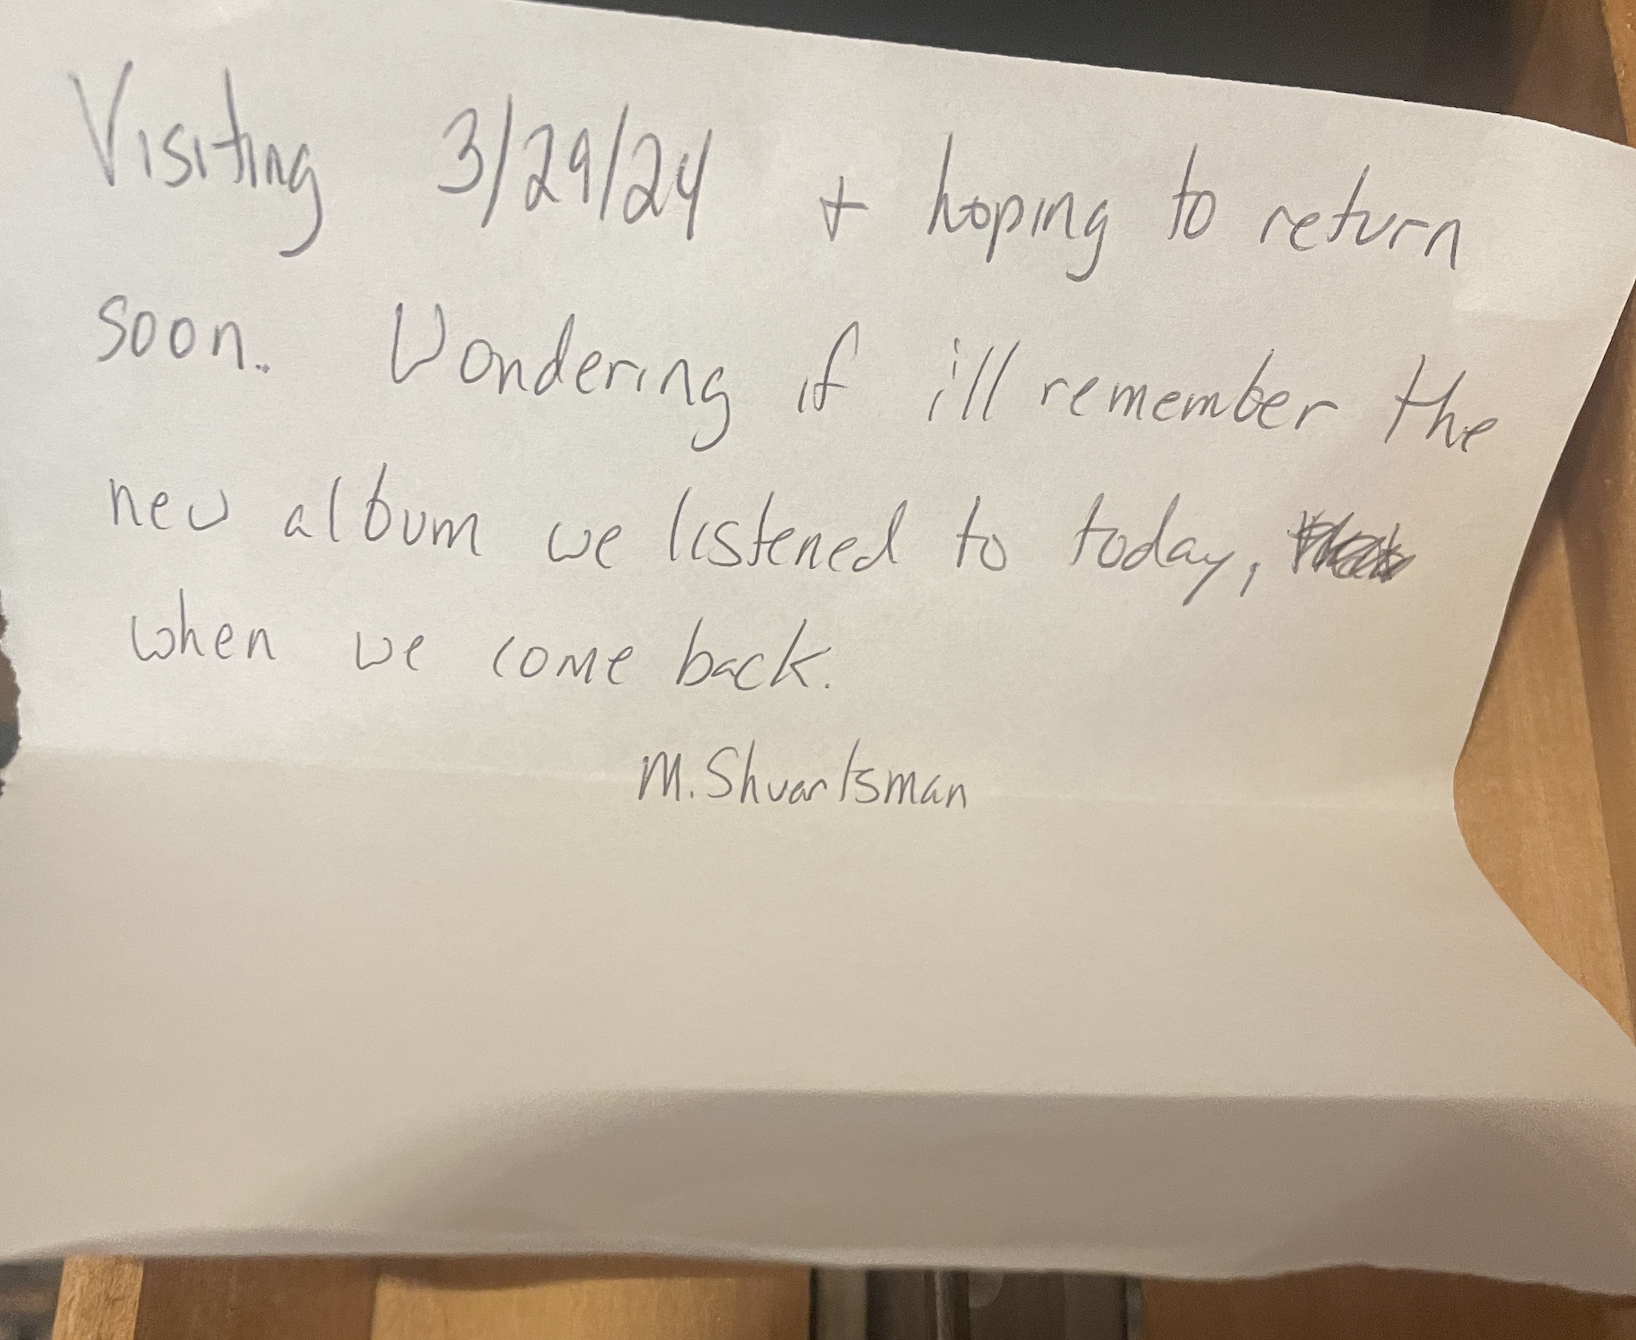 Visiting 3/29/24 + hoping to return
soon. Wondering if ill remember the
new album we listened to today,
when we come back.
M. Shvartsman